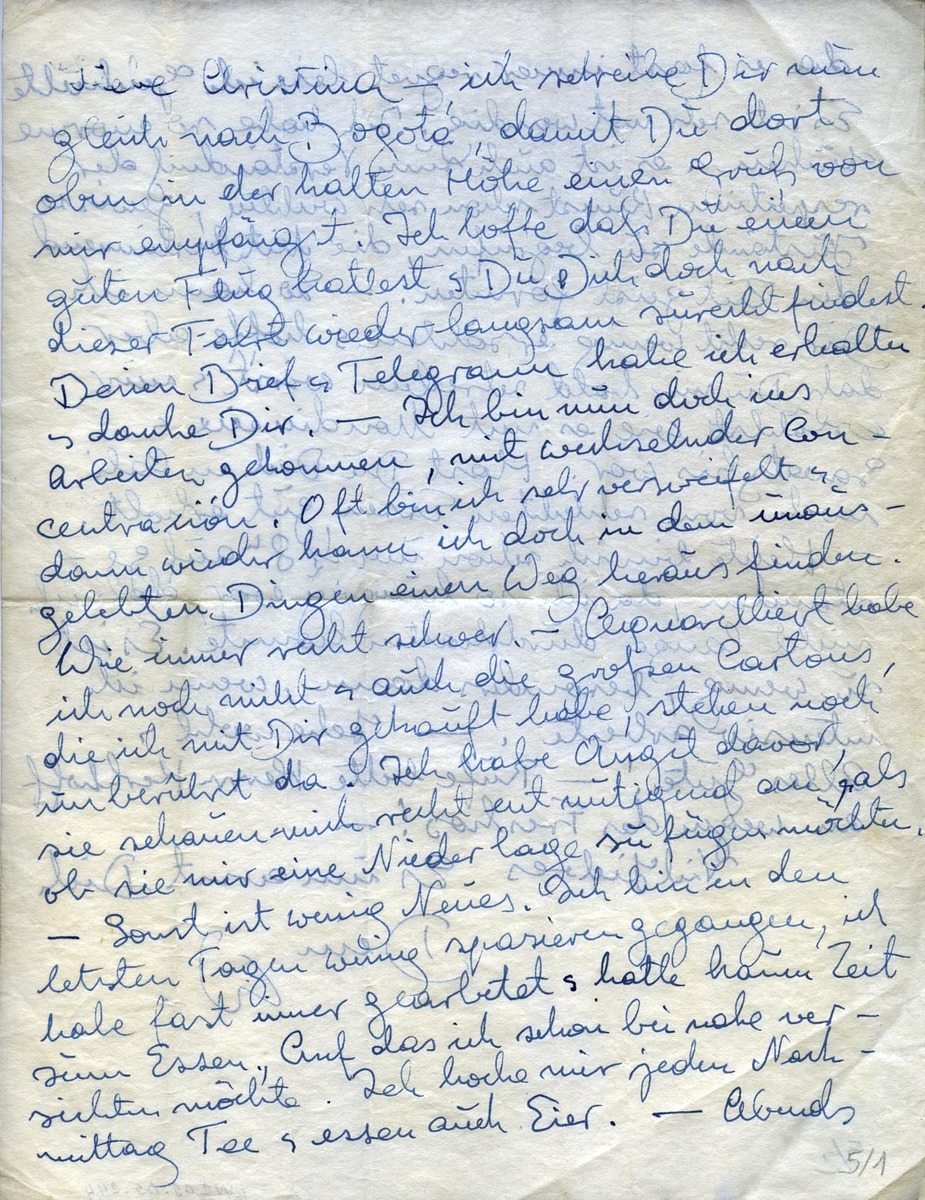 Liebe Christina – ich schreibe Dir nun
gleich nach Bogotá, damit Du dort
oben in der kalten Höhe einen Gruß von
mir empfängst. Ich hoffe daß Du einen
guten Flug hattest & Du Dich doch nach
dieser Fahrt wieder langsam zurecht findest.
Deinen Brief & Telegramm habe ich erhalten
& danke Dir. – Ich bin nun doch ins
Arbeiten gekommen, mit wechselnder Con-
centration. Oft bin ich sehr verzweifelt &
dann wieder kann ich doch in dem unaus-
gelebten Dingen einen Weg heraus finden.
Wie immer recht schwer. – Aquarelliert habe
ich noch nicht & auch die großen Cartons,
die ich mit Dir gekauft habe, stehen noch
unberührt da. Ich habe Angst davor,
sie schauen mich recht entmutigend an, als
ob sie mir eine Niederlage zu fügen möchten.
– Sonst ist wenig Neues. Ich bin in den
letzten Tagen wenig spazieren gegangen, ich
habe fast immer gearbeitet & hatte kaum Zeit
zum Essen, Auf das ich schon bei nahe ver-
zichten möchte. Ich koche mir jeden Nach-
mittag Tee & essen auch Eier. – Abends
5/1